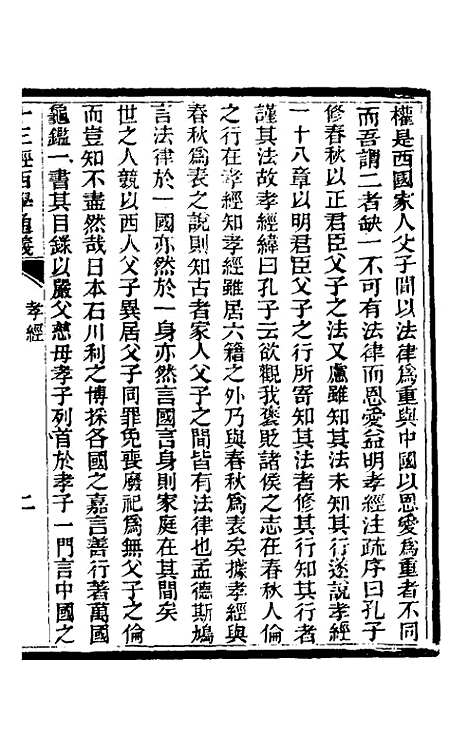 權是西國家人父子間以法律爲重與中國以恩愛爲重者不同
而吾謂二者缺一不可有法律而恩愛益明孝經注疏序曰孔子
修春秋以正君臣父子之法又慮雖知其法未知其行遂說孝經
一十八章以明君臣父子之行所寄知其法者修其行知其行者
謹其法故孝經緯曰孔子云欲觀我褒貶諸侯之志在春秋人倫
之行在孝經知孝經雖居六籍之外乃與春秋爲表矣據孝經與
春秋爲表之說則知古者家人父子之間皆有法律也孟德斯鳩
言法律於一國亦然於一身亦然言國言身則家庭在其間矣
世之人競以西人父子異居父子同罪免喪廢祀爲無父子之倫
而豈知不盡然哉日本石川利之博採各國之嘉言善行著萬國
龜鑑一書其目錄以嚴父慈母孝子列首於孝子一門言中國之
十三經西學通義
孝經
二